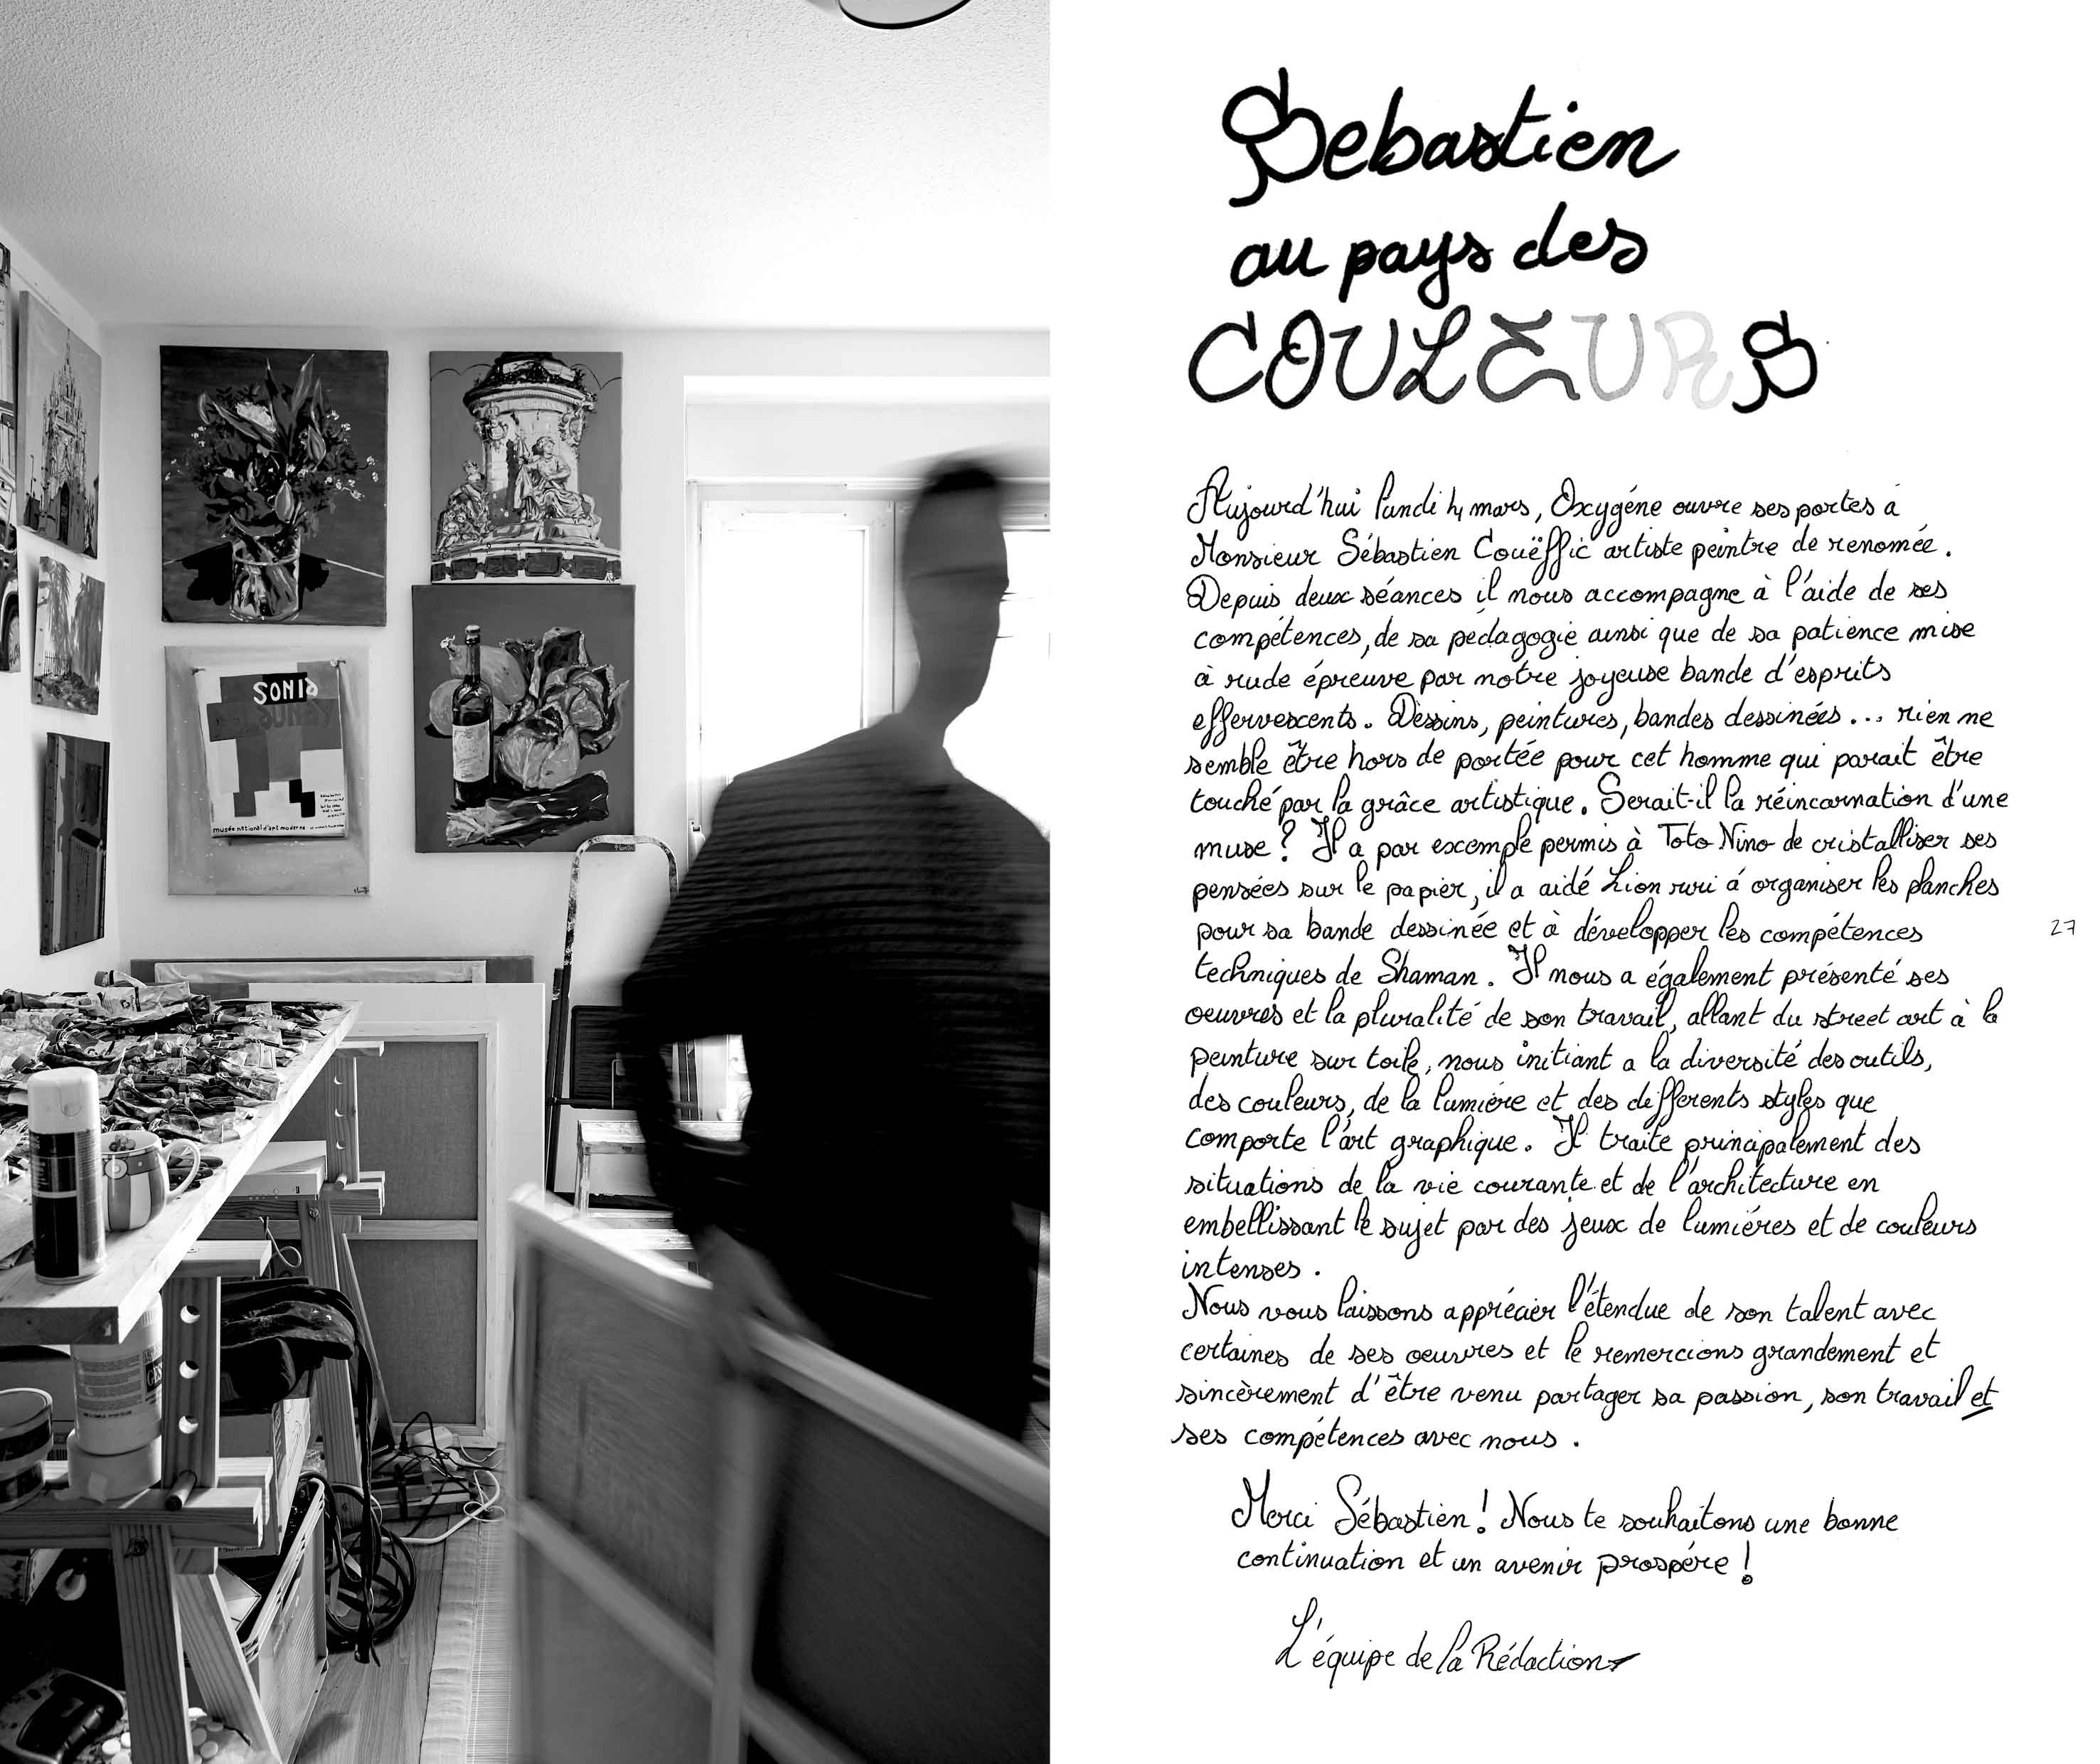 SONIA
DELAUNAY
musée national d'art moderne
Sebastien
au pays des
COULEURS
Aujourd'hui lundi 4 mars, Oxygéne ouvre ses portes à
Monsieur Sébastien Couëffic artiste peintre de renomée.
Depuis deux séances il nous accompagne à l'aide de ses
compétences, de sa pédagogie ainsi que de sa patience mise
à rude épreuve par notre joyeuse bande d'esprits
effervescents. Dessins, peintures, bandes dessinées... rien ne
semble être hors de portée pour cet homme qui parait être
touché par la grâce artistique. Serait-il la réincarnation d'une
muse ? Il a par exemple permis à Toto Nino de cristalliser ses
pensées sur le papier, il a aidé Lion ruri á organiser les planches
pour sa bande dessinée et à développer les compétences
techniques de Shaman. Il nous a également présenté ses
oeuvres et la pluralité de son travail, allant du street art à la
peinture sur toile, nous initiant a la diversité des outils,
des couleurs, de la lumière et des differents styles que
comporte l'art graphique. Il traite principalement des
situations de la vie courante et de l'architecture en
embellissant le sujet par des jeux de lumiéres et de couleurs
intenses.
Nous vous laissons apprécier l'étendue de son talent avec
certaines de ses oeuvres et le remercions grandement et
sincèrement d'être venu partager sa passion, son travail et
ses compétences avec nous.
27
Merci Sébastien ! Nous te souhaitons une bonne
continuation et un avenir prospére !
L'équipe de la Rédaction